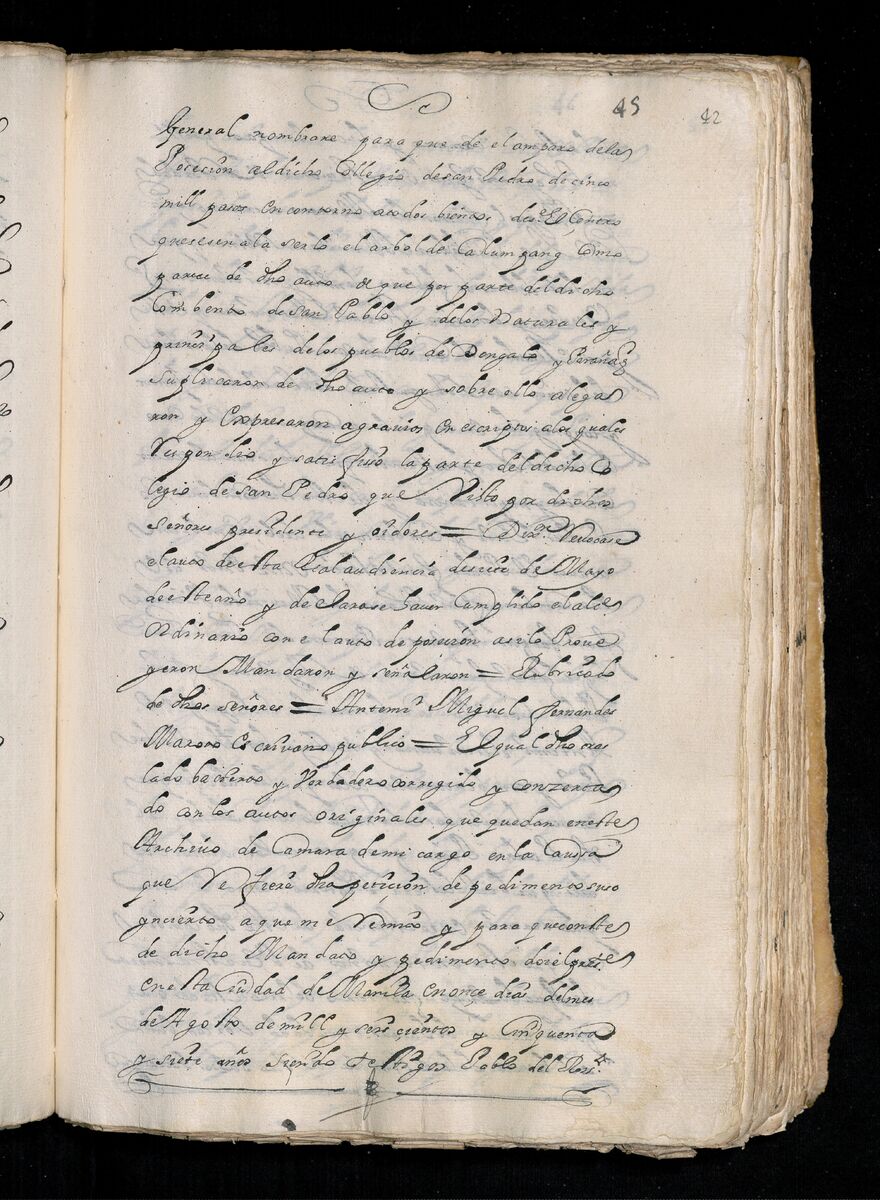 45 42
General nombrare para que de el amparo dela
Posecion al dicho Collegio de san Pedro de cinco
mill pasos en contorno atodos bientos des.e El Centro
que senala ser lo el arbol de Calumpang Como
parece de dho auto de que por parte del dicho
Combento de san Pablo y delos Naturales y
prinsipales delos pueblos de Dongalo y Parañaq
suplicaron de dho auto y sobre ello alega
ron y Expresaron agravios en escriptos alos quales
Respondio y satisfiso la parte del dicho Co
legio de san Pedro que Visto por dichos
señores presidente y oidores = Dix.n Revocase
el auto de esta Real audiencia de siete de Mayo
deesteaño y declarose haver Cumplido el alcde
Ordinario con el auto de posecion asi lo Prove
yeron Mandaron y señalaron = Rubricado
de dhos señores = Antemi Miguel fernandes
Maroto Escrivano publico = El qual dho tras
lado ba cierto y Verdadero corregido y conzerta
do con los autos originales que quedan eneste
Archivo de Camara de mi cargo en la Caussa
que Refiere dha peticion de pedimento suso
yncierto a que me Remito y para que conste
de dicho Mandato y pedimento doi el press.te
en esta Ciudad de Manila en onçe dias del mes
de Agosto de mill y seis cientos y Cinquenta
y siete años siendo testigos Pablo del Ros.o